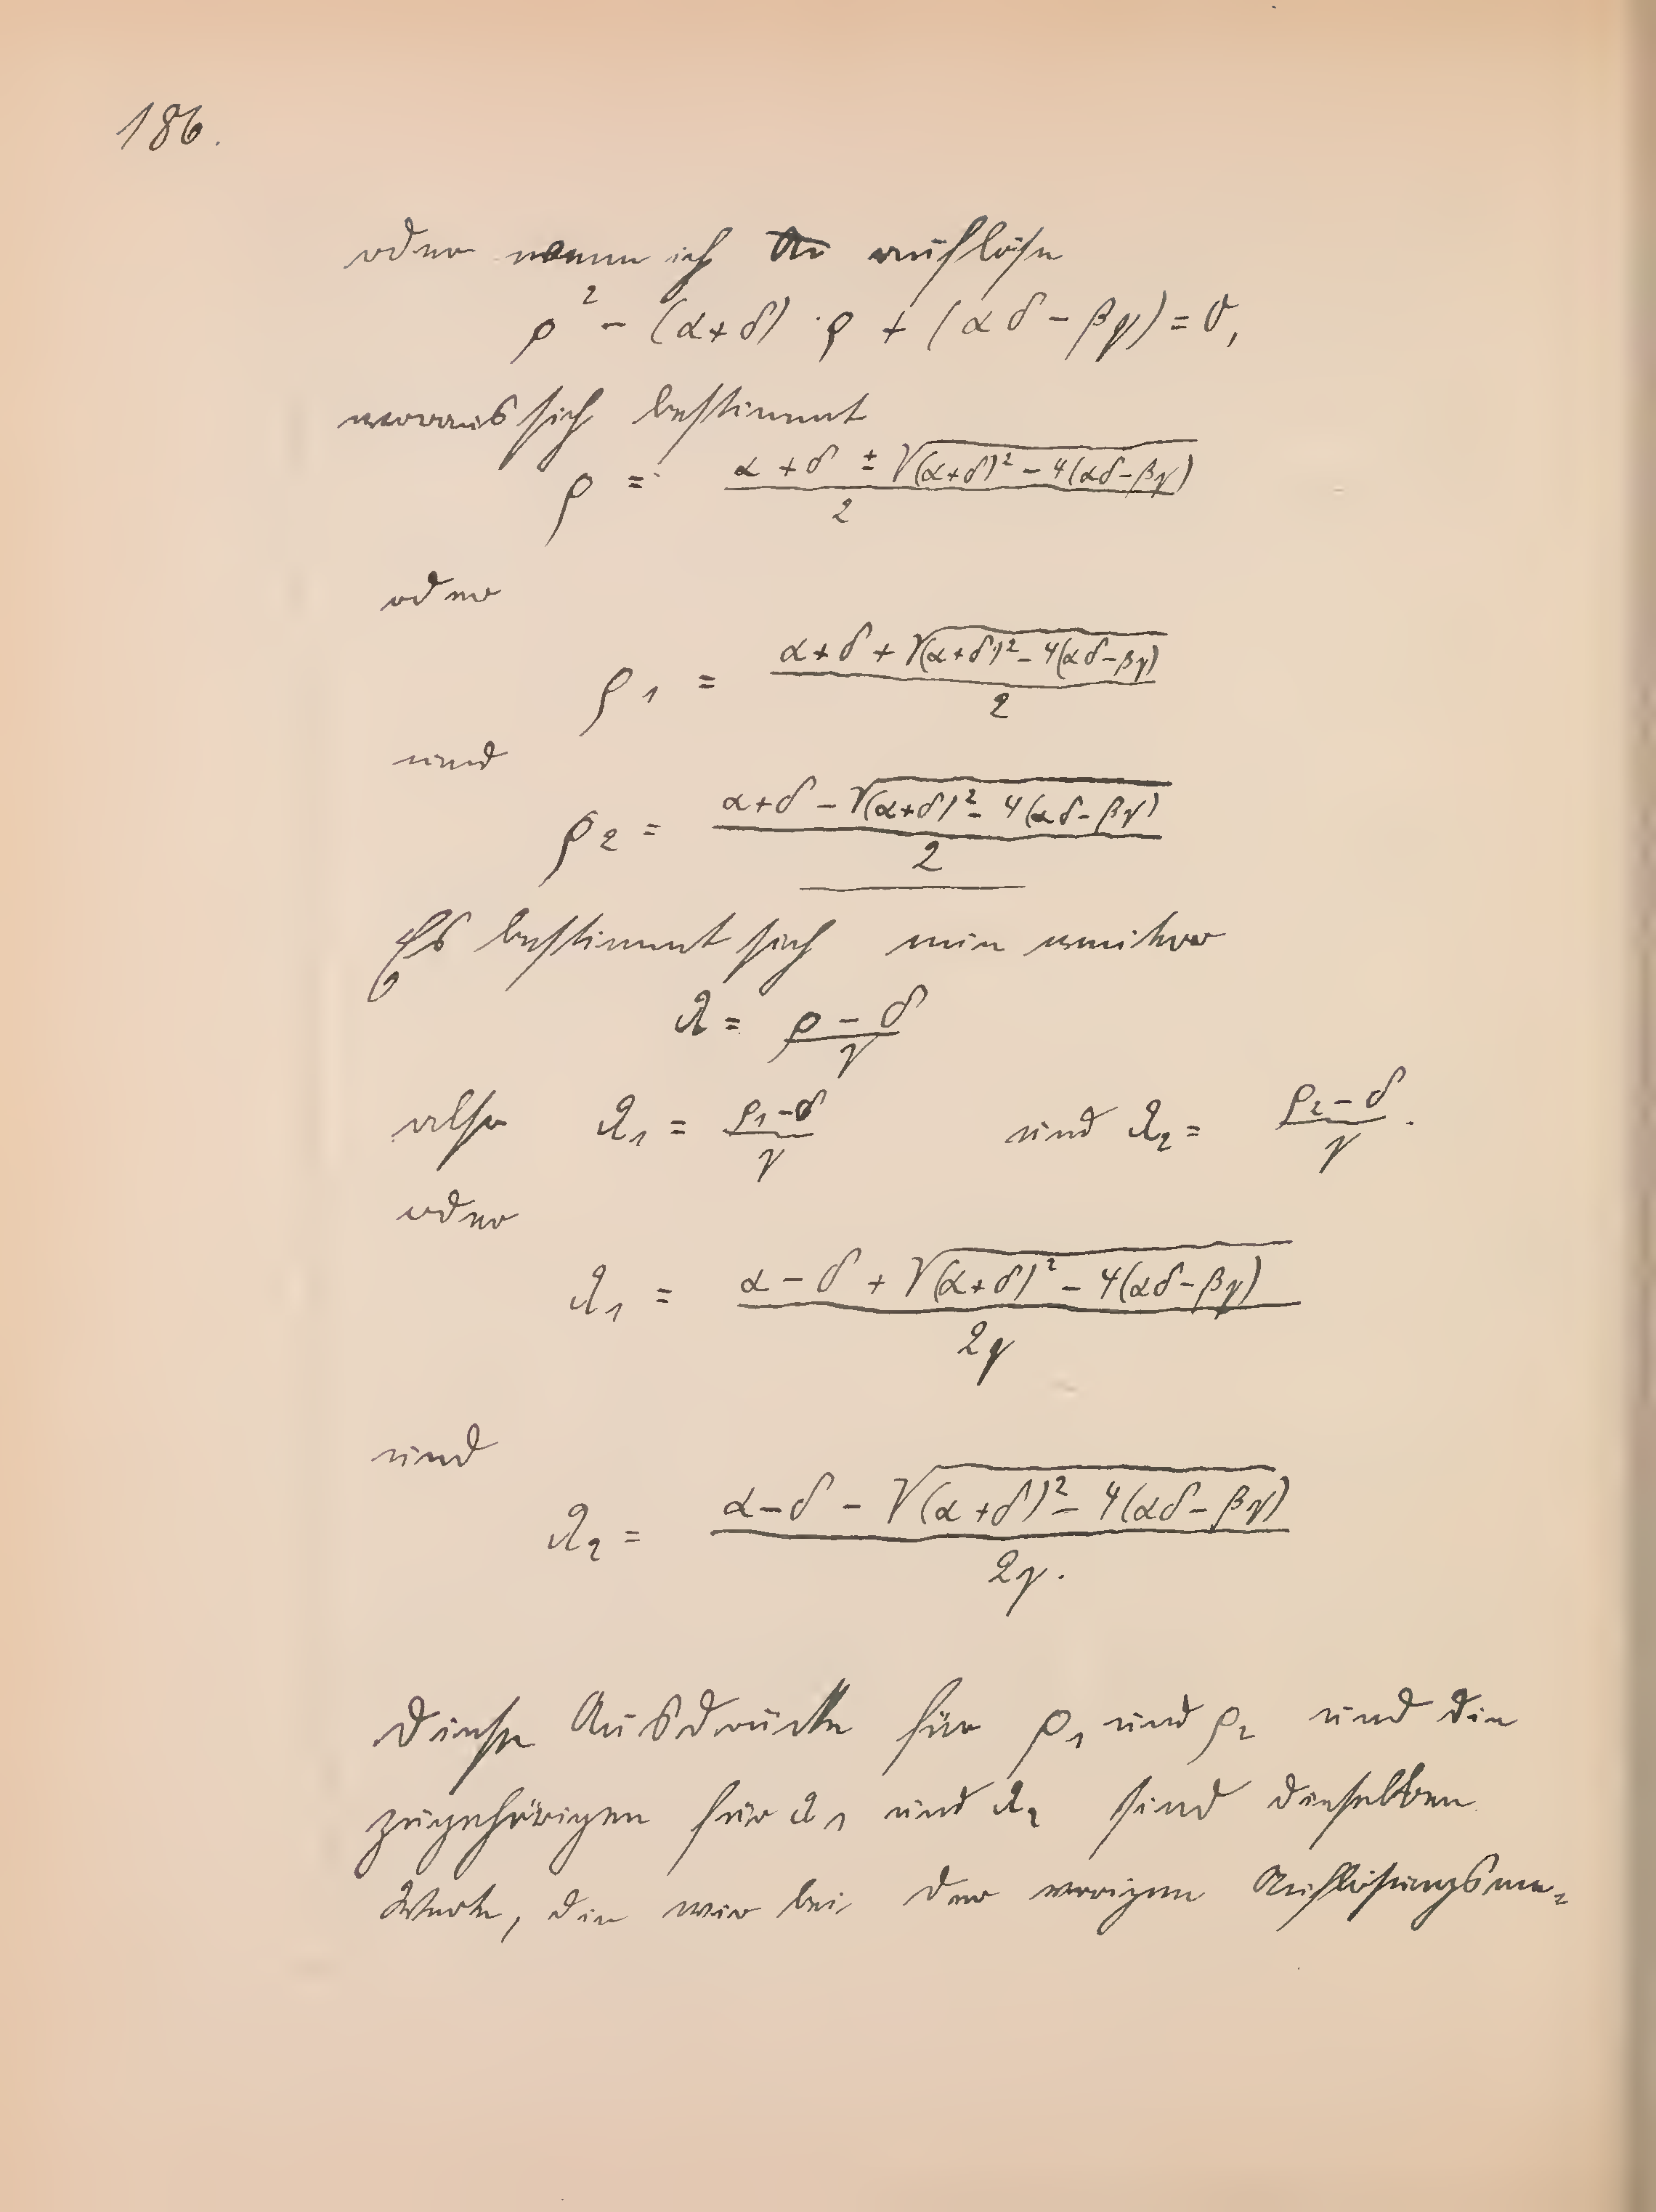 186.
oder wenn ich auflöse
ρ² - (α+δ) · ρ + (αδ - βγ) = 0,
woraus sich bestimmt
ρ = (α + δ ± √((α+δ)² - 4(αδ-βγ))) / 2
oder
ρ₁ = (α+δ + √((α+δ)² - 4(αδ-βγ))) / 2
und
ρ₂ = (α+δ - √((α+δ)² - 4(αδ-βγ))) / 2
Es bestimmt sich nun weiter
λ = (ρ - δ) / γ
also λ₁ = (ρ₁-δ) / γ und λ₂ = (ρ₂-δ) / γ.
oder
λ₁ = (α - δ + √((α+δ)² - 4(αδ-βγ))) / 2γ
und
λ₂ = (α-δ - √((α+δ)² - 4(αδ-βγ))) / 2γ.
Diese Ausdrücke für ρ₁ und ρ₂ und die
zugehörigen für λ₁ und λ₂ sind dieselben
Werte, die wir bei der vorigen Auflösungsme-